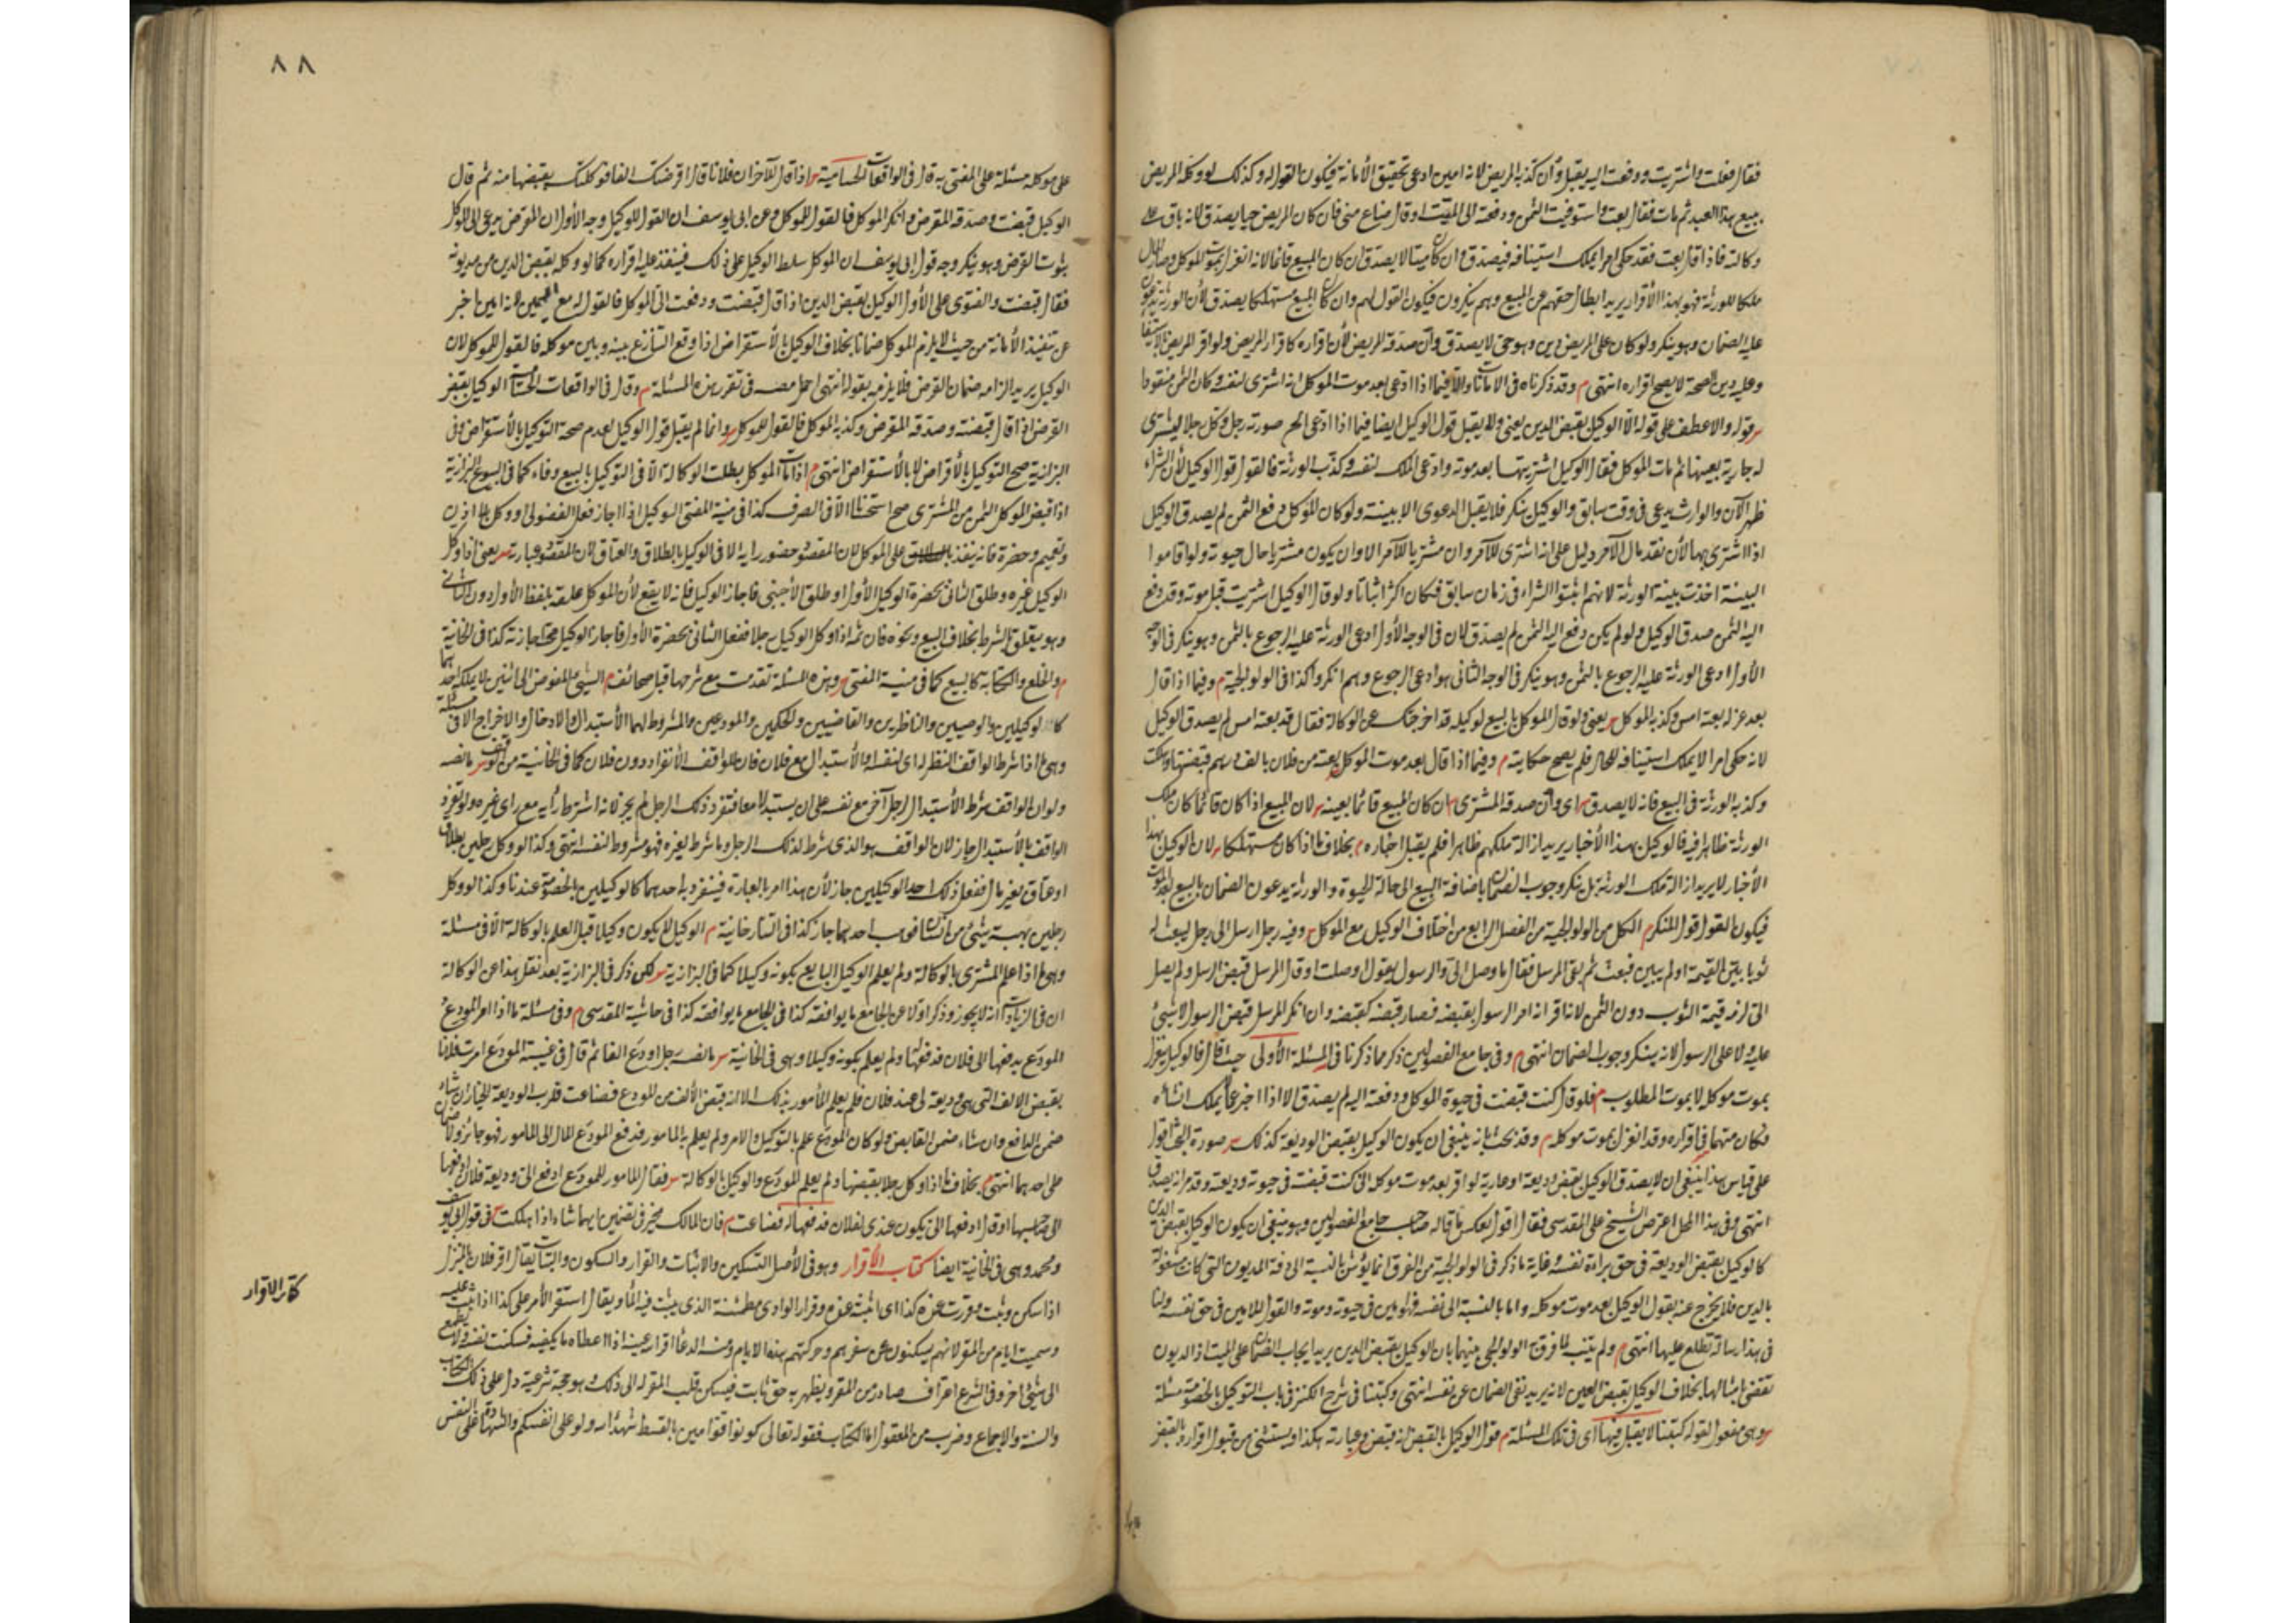 فقال فعلت واشتريت ودفعت اليه يقبل وان كذبه المريض لانه امين ادعى تحقيق الأمانة فيكون القول له وكذلك لو وكله المريض
ببيع هذا العبد ثم مات فقال بعت واستوفيت الثمن ودفعته الى الميت او قال ضاع منى فان كان المريض حيا يصدق لانه باق على
وكالته فاذا قال بعت فقد حكى امرا يملك استينافه فيصدق وان كان ميتا لا يصدق ان كان المبيع قائما لانه انعزل بموت الموكل وصار المال
ملكا للورثة فهو بهذا الأقرار يريد ابطال حقهم عن المبيع وهم ينكرون فيكون القول لهم وان كان المبيع مستهلكا يصدق لأن الورثة يدعون
عليه الضمان وهو ينكر ولو كان على المريض دين وهو حى لا يصدق وان صدقه المريض لأن اقراره كاقرار المريض ولو اقر المريض بالاستيفاء
وعليه دين الصحة لا يصح اقراره انتهى م وقد ذكرناه فى الامانات والا فيما اذا ادعى بعد موت الموكل انه اشترى لنفسه وكان الثمن منقودا
قوله والا عطف على قوله الا الوكيل بقبض الدين يعنى ولا يقبل قول الوكيل ايضا فيما اذا ادعى الخ صورته رجل وكل رجلا ليشترى
له جارية بعينها ثم مات الموكل فقال الوكيل اشتريتها بعد موته وادعى الملك لنفسه وكذب الورثة فالقول قول الوكيل لأن الشراء
ظهر الآن والوارث يدعى فى وقت سابق والوكيل ينكر فلا يقبل الدعوى الا ببينة ولو كان الموكل دفع الثمن لم يصدق الوكيل
اذا اشترى بها لأن نقد مال الآمر دليل على انه اشترى للآمر وان مشتريا للآمر الا وان يكون مشتريا حال حيوته ولو اقاموا
البينة اخذت بينة الورثة لانهم اثبتوا الشراء فى زمان سابق فكان اكثر اثباتا ولو قال الوكيل اشتريت قبل موته وقد دفع
اليه الثمن صدق الوكيل ولو لم يكن دفع اليه الثمن لم يصدق لان فى الوجه الأول ادعى الورثة عليه الرجوع بالثمن وهو ينكر فى الوجه
الأول ادعى الورثة عليه الرجوع بالثمن وهو ينكر فى الوجه الثانى هو ادعى الرجوع وهم انكروا كذا فى الولوالجية م وفيما اذا قال
بعد عزله بعته امس وكذبه الموكل يعنى ولو قال الموكل بالبيع لوكيله قد اخرجتك عن الوكالة فقال قد بعته امس لم يصدق الوكيل
لانه حكى امرا لا يملك استينافه للحال فلم يصح حكايته م وفيما اذا قال بعد موت الموكل بعته من فلان بالف درهم قبضتها وهلكت
وكذبه الورثة فى البيع فانه لا يصدق اى وان صدقه المشترى ان كان المبيع قائما بعينه لان المبيع اذا كان قائما كان ملك
الورثة ظاهرا فيه فالوكيل بهذا الأخبار يريد ازالة ملكهم ظاهرا فلم يقبل اخباره م بخلاف ما اذا كان مستهلكا لان الوكيل بهذا
الأخبار لا يريد ازالة ملك الورثة بل ينكر وجوب الضمان باضافة البيع الى حالة الحيوة والورثة يدعون الضمان بالبيع بعد الموت
فيكون القول قول المنكر م الكل من الولوالجية من الفصل الرابع من اختلاف الوكيل مع الموكل وفيه رجل ارسل الى رجل ليبعث له
ثوبا يبين القيمة او لم يبين فبعث ثم بقى المرسل فقال ما وصل الى والرسول يقول اوصلت او قال المرسل قبض الرسل ولم يصل
الى لزمه قيمة الثوب دون الثمن لانه اقر انه امر الرسول بقبضه فصار قبضه كقبضه وان انكر المرسل قبض الرسول لا شيئ
عليه ولا على الرسول لانه ينكر وجوب الضمان انتهى م وفى جامع الفصولين ذكر ما ذكرنا فى المسئلة الأولى حيث قال فالوكيل ينعزل
بموت موكله لا بموت المطلوب م فلو قال كنت قبضت فى حيوة الموكل ودفعته اليه لم يصدق الا اذا اخبر عما يملك انشاءه
وكان متهما فى اقراره وقد انعزل بموت موكله م وقد بحث بانه ينبغى ان يكون الوكيل بقبض الوديعة كذلك صورة البحث اقول
على قياس هذا ينبغى ان لا يصدق الوكيل بقبض وديعة او عارية لو اقر بعد موت موكله انى كنت قبضت فى حيوته وديعته وقد مر انه يصدق
انتهى وفى هذا المحل اعترض الشيخ على المقدسى فقال اقول بعكس ما قاله صاحب جامع الفصولين وهو ينبغى ان يكون الوكيل بقبض الدين
كالوكيل بقبض الوديعة فى حق براءة نفسه وغاية ما ذكر فى الولوالجية من الفرق انما يؤثر بالنسبة الى ذمة المديون التى كانت مشغولة
بالدين فلا يخرج عنه بقول الوكيل بعد موت موكله واما بالنسبة الى نفسه فهو امين فى حيوته وموته والقول للامين فى حق نفسه ولنا
فى هذا رسالة تطلع عليها انتهى م ولم يتنبه لما فرق به الولوالجى بينهما بان الوكيل بقبض الدين يريد ايجاب الضمان على الميت اذ الديون
تقضى بامثالها بخلاف الوكيل بقبض العين لانه يريد نفى الضمان عن نفسه انتهى وكتبنا فى شرح الكنز فى باب التوكيل بالخصومة مسئلة
وهى مفعول لقوله كتبنا لا يقبل فيها اى فى تلك المسئلة م قول الوكيل بالقبض انه قبض وعبارته هكذا ويستثنى من قبول اقراره بالقبض
٨٨
على موكله مسئلة على المفتى به قال فى الواقعات الحسامية اذا قال للآخر ان فلانا قال اقرضتك الفا فوكلتك بقبضها منه ثم قال
الوكيل قبضت وصدقه المقرض وانكر الموكل فالقول للموكل وعن ابى يوسف ان القول للوكيل وجه الأول ان المقرض يدعى الى الموكل
بثوت القرض وهو ينكر وجه قول ابى يوسف ان الموكل سلط الوكيل على ذلك فينفذ عليه اقراره كما لو وكله بقبض الدين من مديونه
فقال قبضت والفتوى على الأول الوكيل بقبض الدين اذا قال قبضت ودفعت الى الموكل فالقول له مع اليمين لانه امين اخبر
عن تنفيذ الأمانة من حيث لا يلزم الموكل ضمانا بخلاف الوكيل بالأستقراض اذا وقع التنازع بينه وبين موكله فالقول للموكل لان
الوكيل يريد الزامه ضمان القرض فلا يلزمه بقوله انتهى اجمل مصنف فى تقرير هذه المسئلة م وقال فى الواقعات الحسامية الوكيل بقبض
القرض اذا قال قبضته وصدقه المقرض وكذبه الموكل فالقول للموكل وانما لم يقبل قول الوكيل لعدم صحة التوكيل بالأستقراض وفى
البزازية صح التوكيل بالأقراض لا بالأستقراض انتهى م اذا مات الموكل بطلت الوكالة الا فى التوكيل بالبيع وفاء كما فى البيوع البزازية
اذا قبض الموكل الثمن من المشترى صح استحسانا الا فى الصرف كذا فى منية المفتى الوكيل اذا اجاز فعل الفضولى او وكل بلا اذن
وتعميم وحضره فانه ينفذ على الموكل لان المقصود حضور رايه الا فى الوكيل بالطلاق والعتاق لان المقصود عبارته يعنى اذا وكل
الوكيل غيره وطلق الثانى بحضرة الوكيل الأول او طلق الأجنبى فاجاز الوكيل فانه لا يقع لأن الموكل علقه بلفظ الأول دون الثانى
وهو يتعلق بالشرط بخلاف البيع ونحوه فان ثمه اذا وكل الوكيل رجلا ففعل الثانى بحضرة الأول فاجاز الوكيل صح اجازته كذا فى الخانية
م والخلع والكتابة كالبيع كما فى منية المفتى وهذه المسئلة تقدمت مع شرحها قبل صحائف م الشيئ المفوض الى اثنين لا يملكه احدهما
كالوكيلين والوصيين والناظرين والقاضيين والحكمين والمودعين والمشروط لهما الأستبدال والادخال والاخراج الا فى مسئلة
وهى ما اذا شرط الواقف النظر له اى لنفسه والأستبدال مع فلان فان للواقف الأنفراد دون فلان كما فى الخانية من الوقف ما نصه
ولو ان الواقف شرط الأستبدال لرجل آخر مع نفسه على ان يستبدلا معا فتفرد ذلك الرجل لم يجز لانه اشترط رأيه مع راى غيره ولو تفرد
الواقف بالأستبدال جاز لان الواقف هو الذى شرط لذلك الرجل وما شرط لغيره فهو مشروط لنفسه انتهى وكذا لو وكل رجلين بطلاق
او عتاق بغير مال ففعل ذلك احد الوكيلين جاز لأن هذا امر بالعبارة فينفرد به احدهما كالوكيلين بالخصومة عندنا وكذا لو وكل
رجلين بهبة شيئ من انسان فوهب احدهما جاز كذا فى التتارخانية م الوكيل لا يكون وكيلا قبل العلم بالوكالة الا فى مسئلة
وهى ما اذا علم المشترى بالوكالة ولم يعلم الوكيل البايع بكونه وكيلا كما فى البزازية لكن ذكر فى البزازية بعد نقل هذا عن الوكالة
ان فى الزيادات انه لا يجوز وذكر اولا عن الجامع ما يوافقه كذا فى الجامع ما يوافقه كذا فى حاشية المقدسى م وفى مسئلة ما اذا امر المودع
المودع بدفعها الى فلان فدفعها ولم يعلم بكونه وكيلا وهى فى الخانية ما نصه رجل اودع الفا ثم قال فى غيبة المودع امرت فلانا
بقبض الالف التى هى وديعة لى عند فلان فلم يعلم المأمور بذلك الا انه قبض الألف من المودع فضاعت فلرب الوديعة الخيار ان شاء
ضمن الدافع وان شاء ضمن القابض ولو كان المودع علم بالتوكيل والامر ولم يعلم به المامور فدفع المودع المال الى المامور فهو جائز ولا ضمان
على احدهما انتهى م بخلاف ما اذا وكل رجلا بقبضها ولم يعلم المودع والوكيل بالوكالة فقال المامور للمودع ادفع الى وديعة فلان ادفعها
الى صاحبها او قال ادفعها الى يكون عندى لفلان فدفعها له فضاعت م فان المالك مخير فى تضمين ايهما شاء اذا هلكت فى قول ابى يوسف
ومحمد وهى فى الخانية ايضا كتاب الأقرار وهو فى الأصل التسكين والاثبات والقرار والسكون والثبات يقال اقر فلان بالمنزل
كتاب الاقرار
اذا سكن وثبت وقررت عنده كذا اى اثبته عنده وقرار الوادى مطمئنه الذى يثبت فيه الماء ويقال استقر الأمر على كذا اذا ثبت عليه
وسميت ايام منى القر لانهم يسكنون عن سفرهم وحركتهم هذه الايام ومنه الدعاء اقر الله عينه اذا اعطاه ما يكفيه فسكنت نفسه ولا يطمع
الى شيئ اخر وفى الشرع اعتراف صادر من المقر ويظهر به حق ثابت فيسكن قلب المقر له الى ذلك وهو حجة شرعية دل على ذلك الكتاب
والسنة والاجماع وضرب من المعقول اما الكتاب فقوله تعالى كونوا قوامين بالقسط شهداء لله ولو على انفسكم والشهادة على النفس